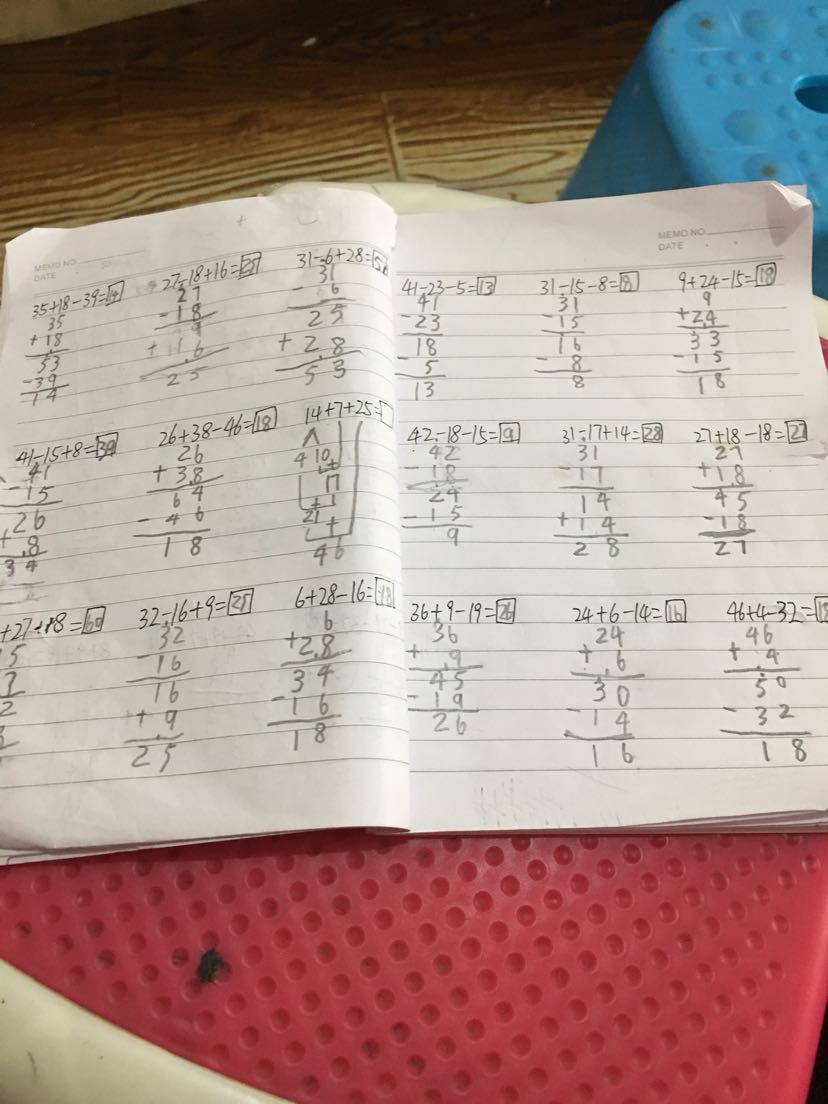 MEMO NO
DATE
35+18-39=14
35
+18
53
-39
14
27-18+16=
27
-18
9
+16
25
31-6+28=
31
-6
25
+28
53
41-15+8=
41
-15
26
+8
34
26+38-46=18
26
+38
64
-46
18
14+7+25=
4 10
+
17
+
21
+
46
+27+18=60
5
2
32-16+9=25
32
16
16
+9
25
6+28-16=18
6
+28
34
-16
18
MEMO NO
DATE
41-23-5=13
41
-23
18
-5
13
31-15-8=8
31
-15
16
-8
8
9+24-15=18
9
+24
33
-15
18
42-18-15=9
42
-18
24
-15
9
31-17+14=28
31
-17
14
+14
28
27+18-18=27
27
+18
45
-18
27
36+9-19=26
36
+9
45
-19
26
24+6-14=16
24
+6
30
-14
16
46+4-32=18
46
+4
50
-32
18